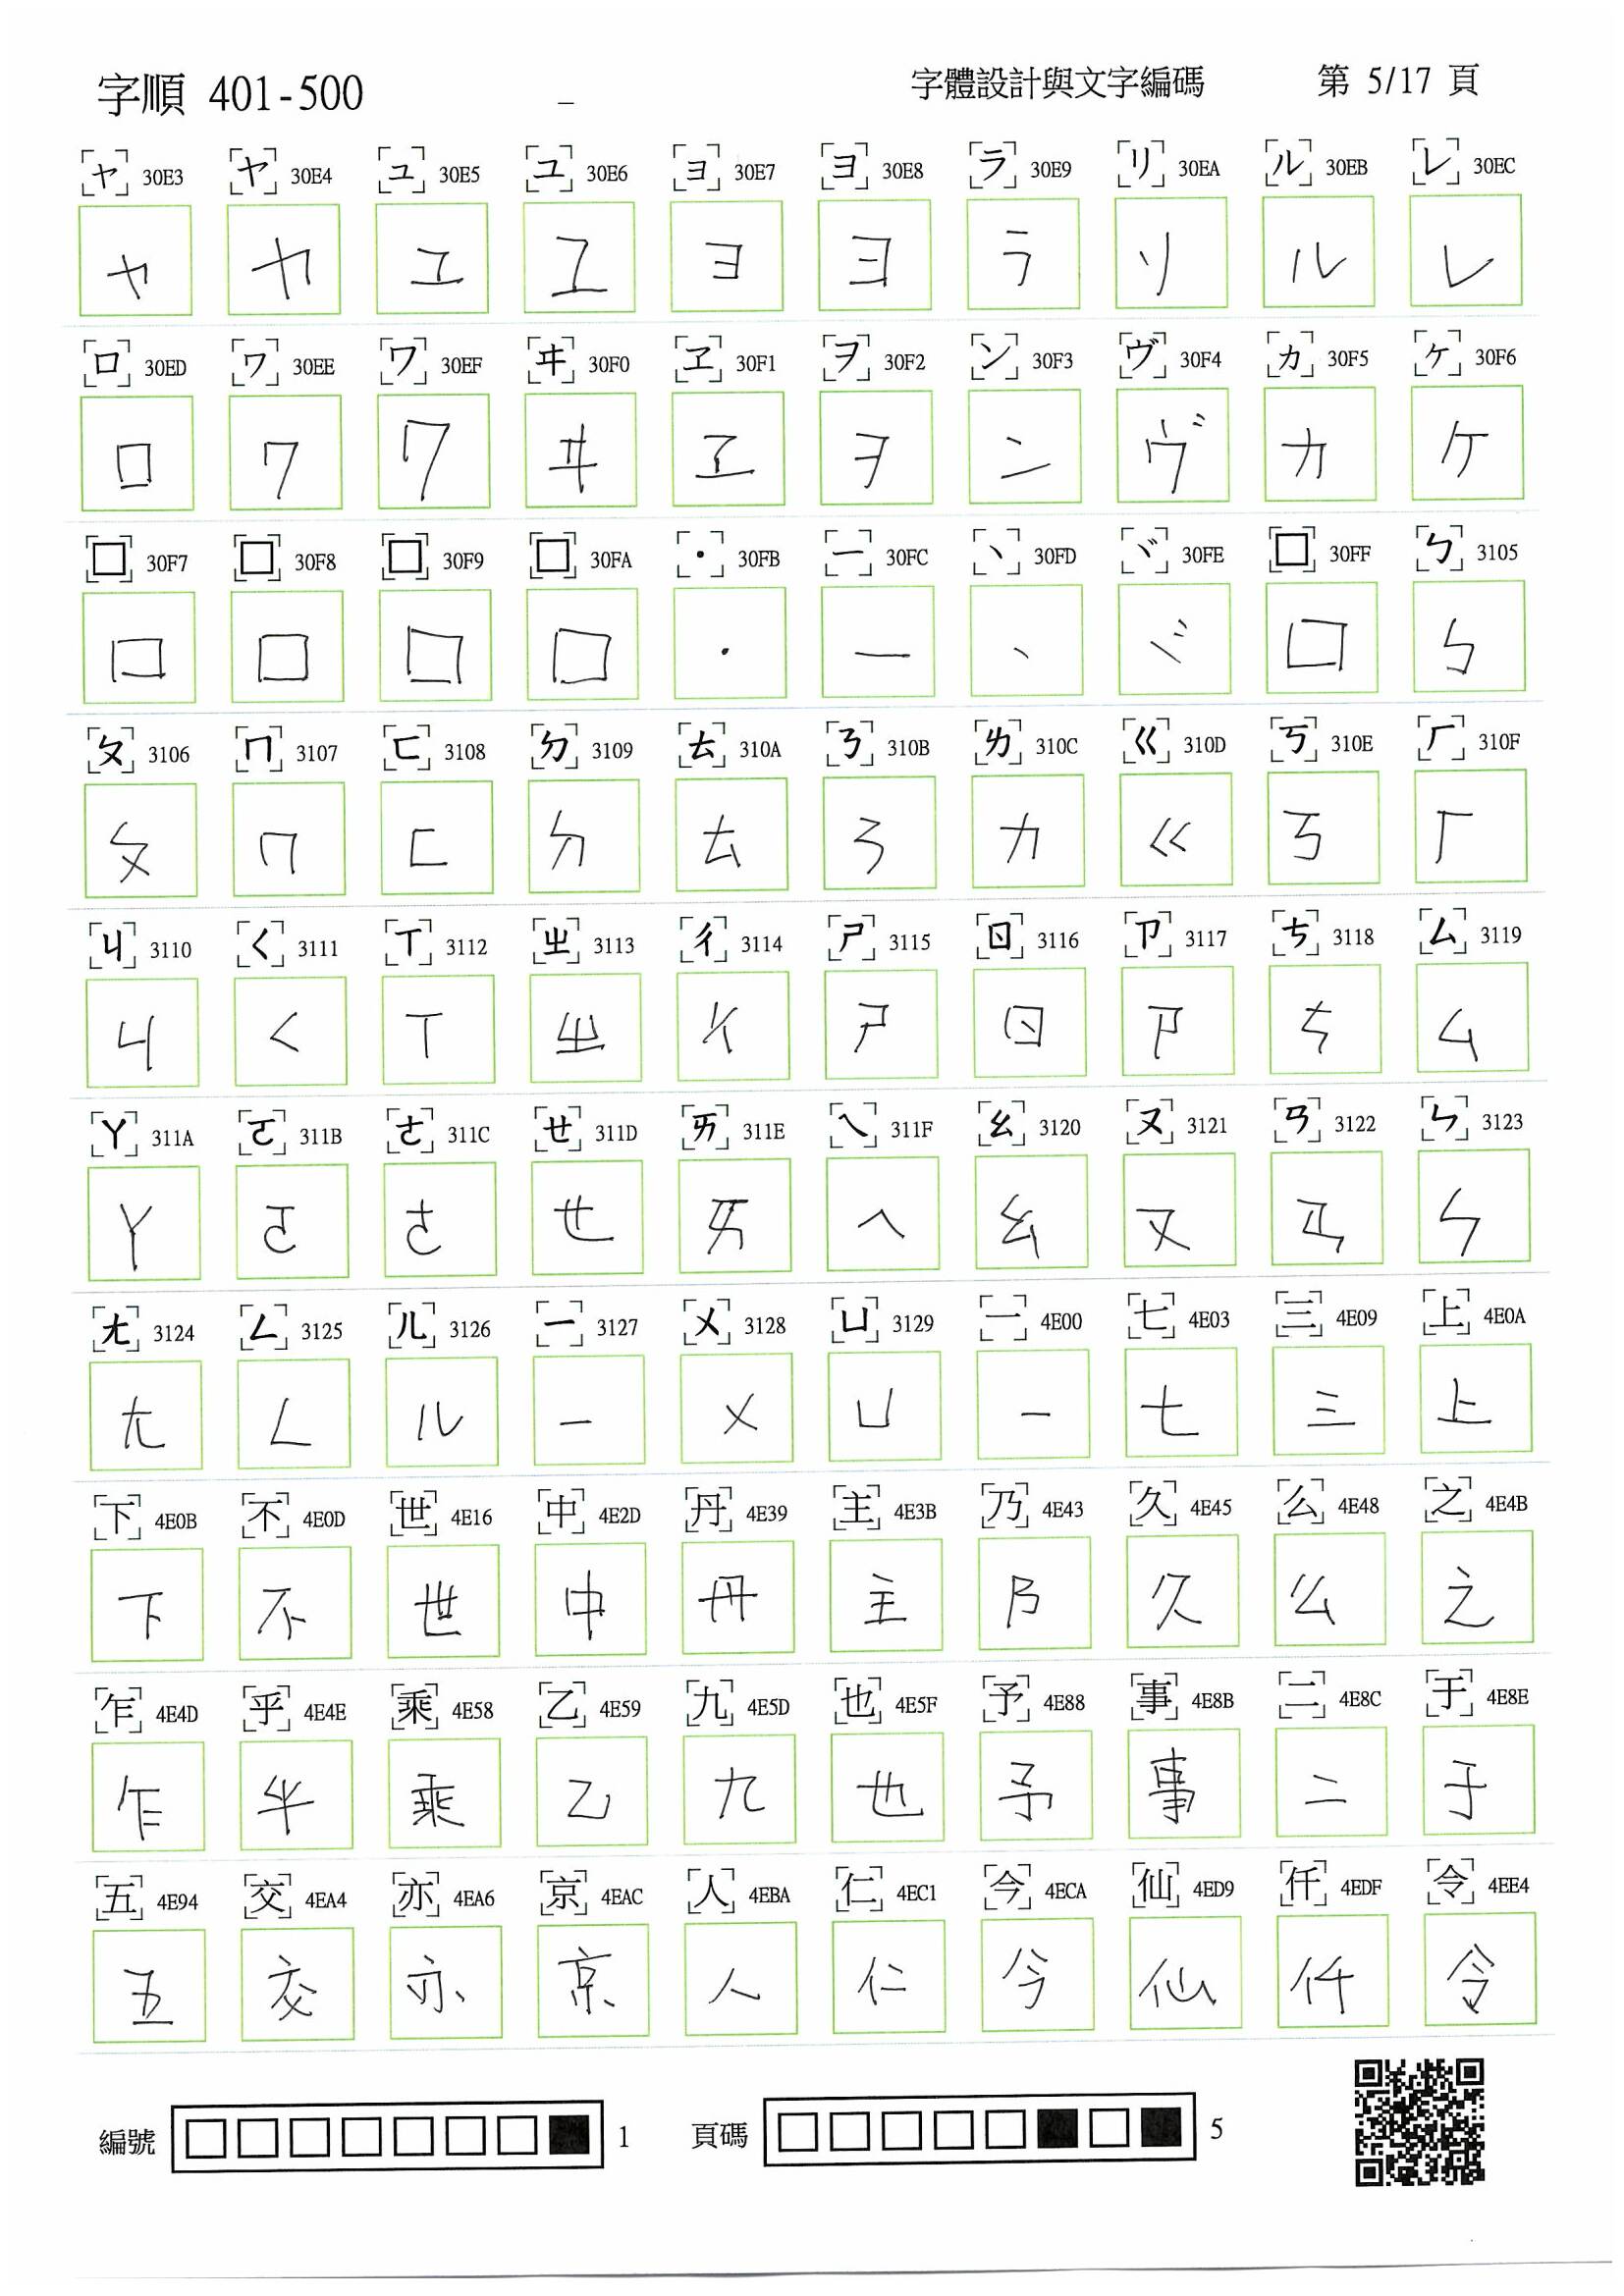 字順 401-500 – 字體設計與文字編碼 第 5/17 頁
ャ 30E3 ヤ 30E4 ュ 30E5 ユ 30E6 ョ 30E7 ヨ 30E8 ラ 30E9 リ 30EA ル 30EB レ 30EC
ャ ヤ ュ ユ ョ ヨ ラ リ ル レ
ロ 30ED ヮ 30EE ワ 30EF ヰ 30F0 ヱ 30F1 ヲ 30F2 ン 30F3 ヴ 30F4 ヵ 30F5 ヶ 30F6
ロ ヮ ワ ヰ ヱ ヲ ン ヴ ヵ ヶ
□ 30F7 □ 30F8 □ 30F9 □ 30FA ・ 30FB ー 30FC ヽ 30FD ヾ 30FE □ 30FF ㄅ 3105
□ □ □ □ ・ ー ヽ ヾ □ ㄅ
ㄆ 3106 ㄇ 3107 ㄈ 3108 ㄉ 3109 ㄊ 310A ㄋ 310B ㄌ 310C ㄍ 310D ㄎ 310E ㄏ 310F
ㄆ ㄇ ㄈ ㄉ ㄊ ㄋ ㄌ ㄍ ㄎ ㄏ
ㄐ 3110 ㄑ 3111 ㄒ 3112 ㄓ 3113 ㄔ 3114 ㄕ 3115 ㄖ 3116 ㄗ 3117 ㄘ 3118 ㄙ 3119
ㄐ ㄑ ㄒ ㄓ ㄔ ㄕ ㄖ ㄗ ㄘ ㄙ
ㄚ 311A ㄛ 311B ㄜ 311C ㄝ 311D ㄞ 311E ㄟ 311F ㄠ 3120 ㄡ 3121 ㄢ 3122 ㄣ 3123
ㄚ ㄛ ㄜ ㄝ ㄞ ㄟ ㄠ ㄡ ㄢ ㄣ
ㄤ 3124 ㄥ 3125 ㄦ 3126 ㄧ 3127 ㄨ 3128 ㄩ 3129 一 4E00 七 4E03 三 4E09 上 4E0A
ㄤ ㄥ ㄦ ㄧ ㄨ ㄩ 一 七 三 上
下 4E0B 不 4E0D 世 4E16 中 4E2D 丹 4E39 主 4E3B 乃 4E43 久 4E45 么 4E48 之 4E4B
下 不 世 中 丹 主 乃 久 么 之
乍 4E4D 乎 4E4E 乘 4E58 乙 4E59 九 4E5D 也 4E5F 予 4E88 事 4E8B 二 4E8C 于 4E8E
乍 乎 乘 乙 九 也 予 事 二 于
五 4E94 交 4EA4 亦 4EA6 京 4EAC 人 4EBA 仁 4EC1 今 4ECA 仙 4ED9 仟 4EDF 令 4EE4
五 交 亦 京 人 仁 今 仙 仟 令
編號 1 頁碼 5